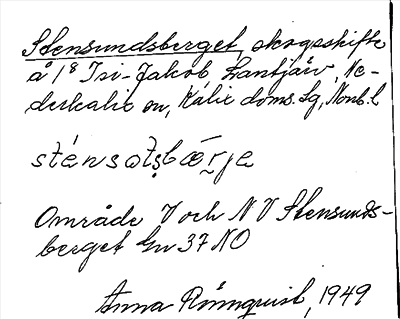 Stensundsberget, skogsskifte
å 1⁸ Isi-Jakob, Lantjärv, Ne-
derkalix sn, Kalix doms. lg, Nonb. l
sténsøtsbærje
Område V och NV Stensunds-
berget Gv 37 NO
Anna Rönnquist, 1949